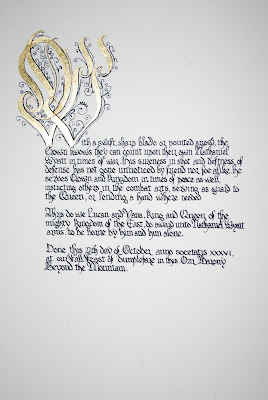 With a swift, sharp blade or pointed arrow, the
Crown knows they can count upon their own Nathaniel
Wyatt in times of war. His sureness in shot and deftness of
defense has not gone unnoticed by friend nor foe alike. He
serves Crown and Kingdom in times of peace as well,
instructing others in the combat arts, serving as guard to
the Queen, or lending a hand where needed.
Thus do we Lucan and Jana, King and Queen of the
mighty Kingdom of the East, do award unto Nathaniel Wyatt
arms, to be borne by him and him alone.
Done this day of October, anno societatis XXXVI,
at our Fall Feast of in this Our Barony
Beyond the Mountain.